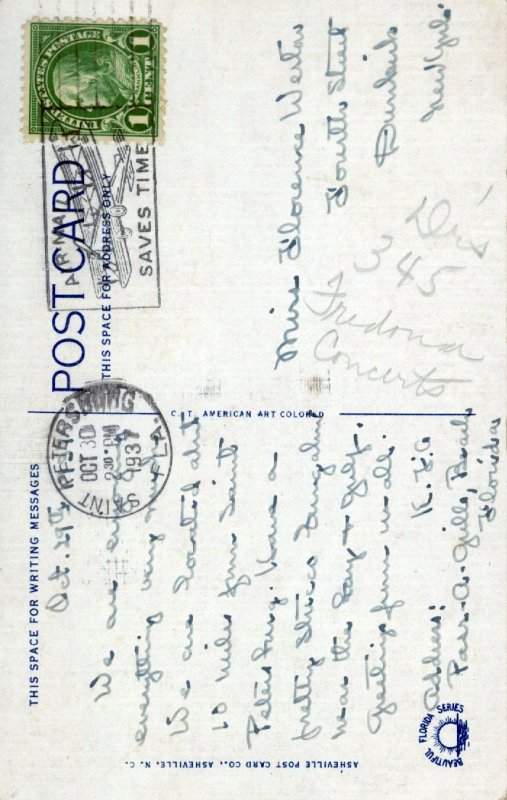 THIS SPACE FOR WRITING MESSAGES
Oct. 29th
We are enjoying
everything very much.
We are located abt
10 miles from Saint
Petersburg. Have a
pretty stucco bungalow
near the bay & gulf.
Greetings from us all.
Address:
Pass-A-Grille, Beach
Florida
BEAUTIFUL FLORIDA SERIES
ASHEVILLE POST CARD CO., ASHEVILLE, N. C.
C. T. AMERICAN ART COLORED
POST CARD
THIS SPACE FOR ADDRESS ONLY
UNITED STATES POSTAGE
1 CENT 1
AIR MAIL
SAVES TIME
SAINT PETERSBURG FLA.
OCT 30
2:30 PM
1937
Miss Florence
Fourth Street
Dunkirk
New York.
3 45
Fredonia
Concerts